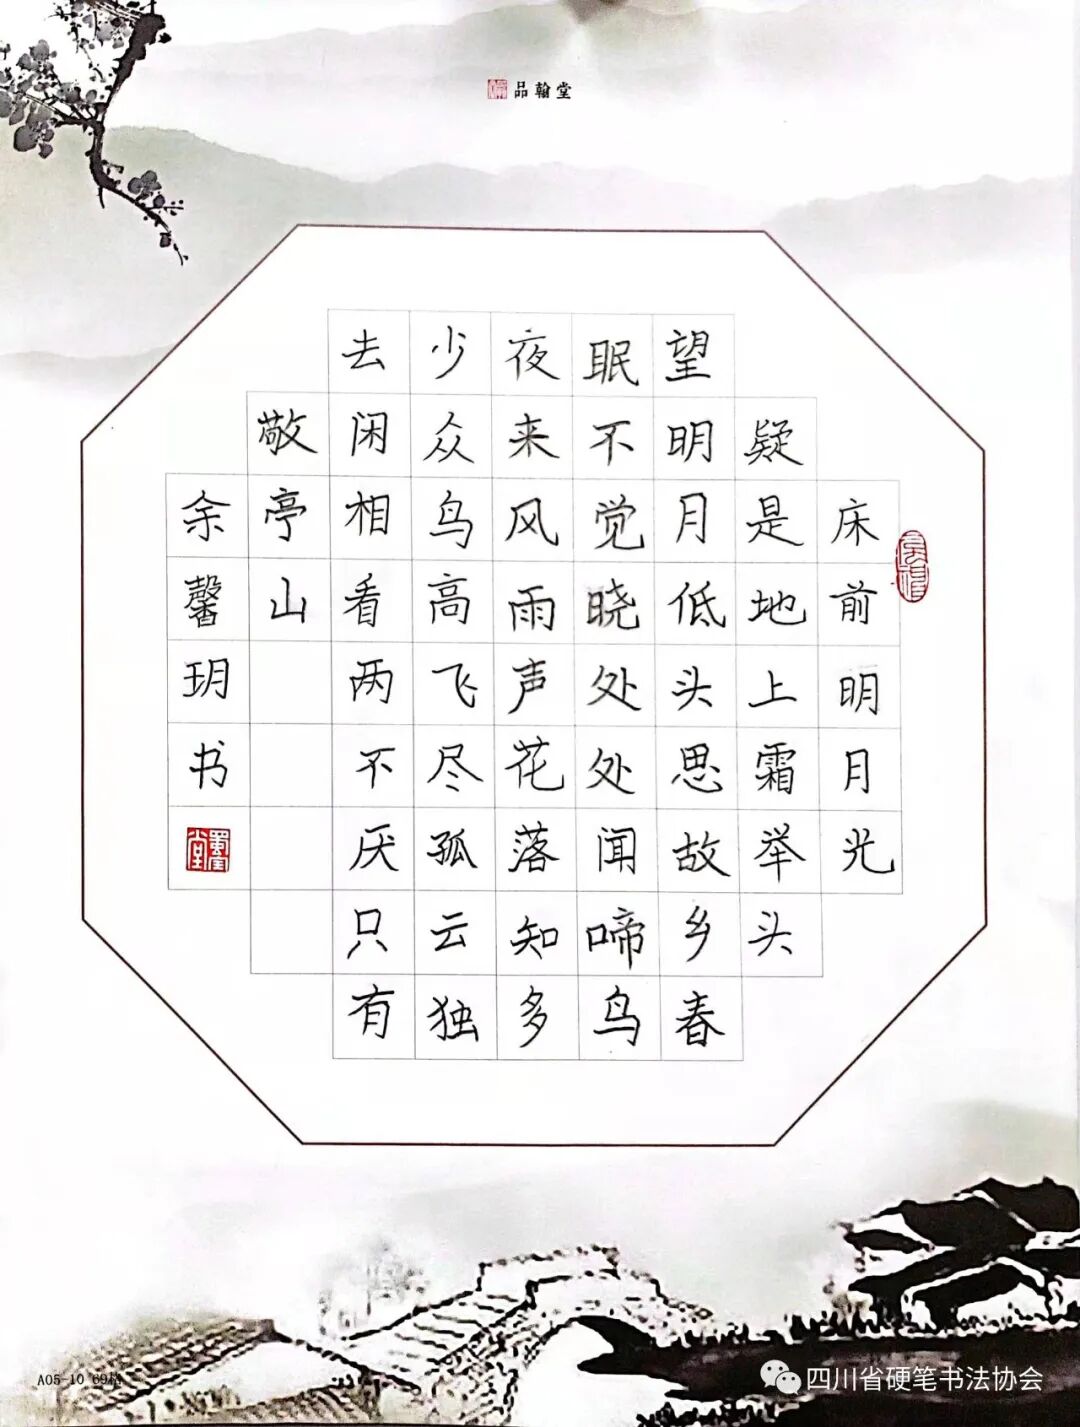 品翰堂
床前明月光
疑是地上霜举头
望明月低头思故乡春
眠不觉晓处处闻啼鸟
夜来风雨声花落知多
少众鸟高飞尽孤云独
去闲相看两不厌只有
敬亭山
余馨玥书
A05-10 69格
四川省硬笔书法协会